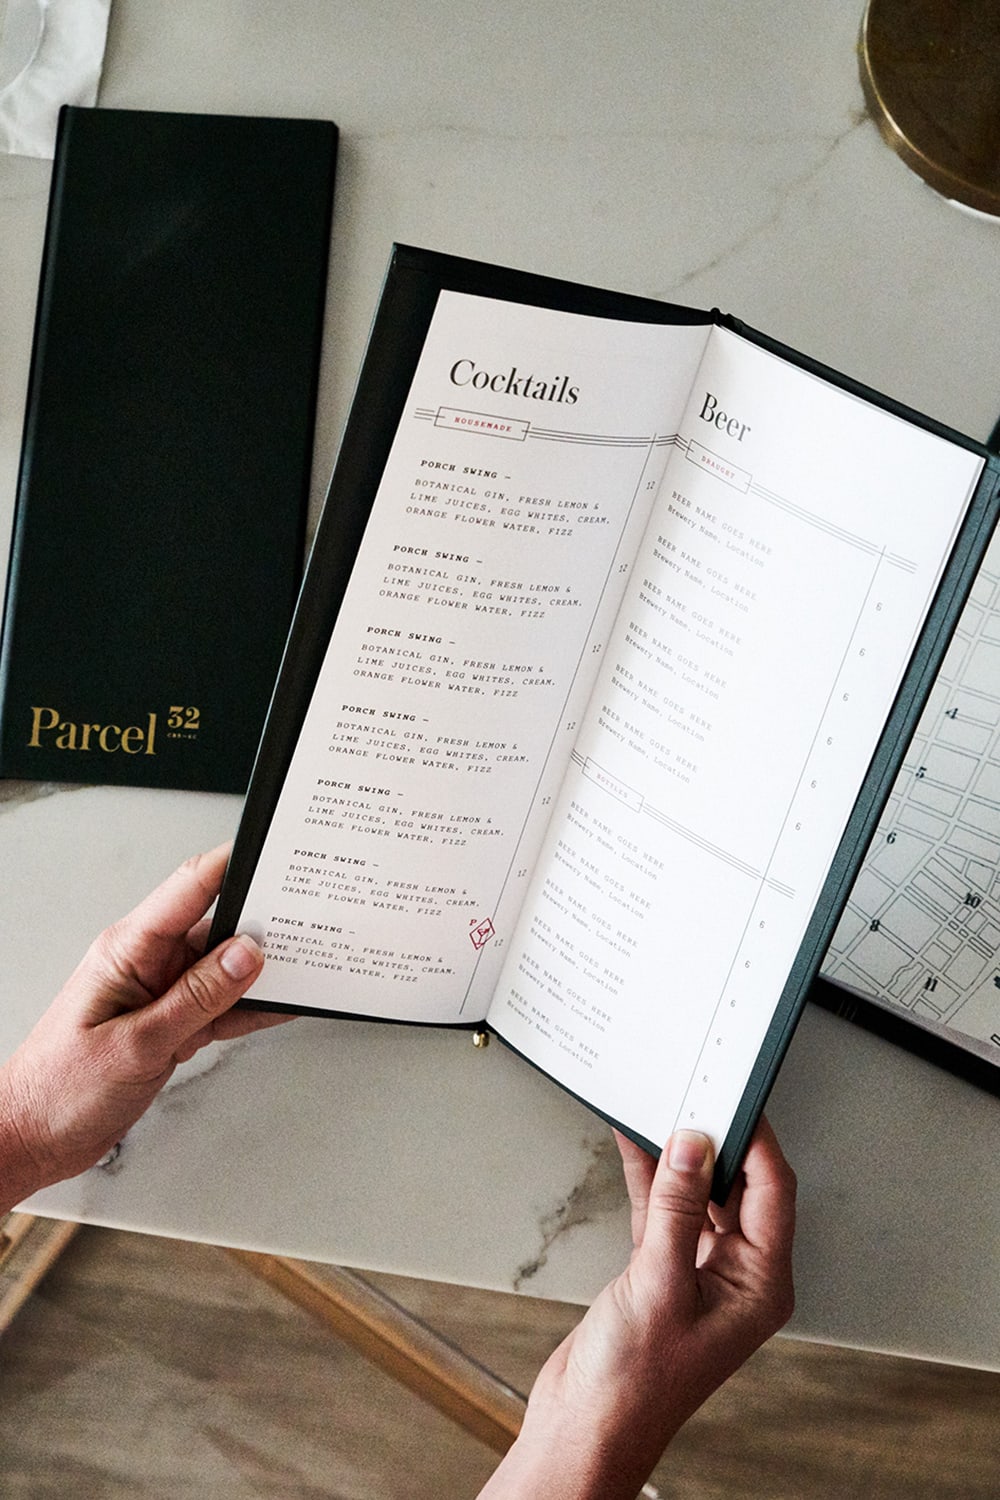 Parcel 32
CHS—SC
Cocktails
HOUSEMADE
PORCH SWING —
BOTANICAL GIN, FRESH LEMON &
LIME JUICES, EGG WHITES, CREAM,
ORANGE FLOWER WATER, FIZZ
12
PORCH SWING —
BOTANICAL GIN, FRESH LEMON &
LIME JUICES, EGG WHITES, CREAM,
ORANGE FLOWER WATER, FIZZ
12
PORCH SWING —
BOTANICAL GIN, FRESH LEMON &
LIME JUICES, EGG WHITES, CREAM,
ORANGE FLOWER WATER, FIZZ
12
PORCH SWING —
BOTANICAL GIN, FRESH LEMON &
LIME JUICES, EGG WHITES, CREAM,
ORANGE FLOWER WATER, FIZZ
12
PORCH SWING —
BOTANICAL GIN, FRESH LEMON &
LIME JUICES, EGG WHITES, CREAM,
ORANGE FLOWER WATER, FIZZ
12
PORCH SWING —
BOTANICAL GIN, FRESH LEMON &
LIME JUICES, EGG WHITES, CREAM,
ORANGE FLOWER WATER, FIZZ
12
PORCH SWING —
BOTANICAL GIN, FRESH LEMON &
LIME JUICES, EGG WHITES, CREAM,
ORANGE FLOWER WATER, FIZZ
12
P
Beer
DRAUGHT
BEER NAME GOES HERE
Brewery Name, Location
6
BEER NAME GOES HERE
Brewery Name, Location
6
BEER NAME GOES HERE
Brewery Name, Location
6
BEER NAME GOES HERE
Brewery Name, Location
6
BEER NAME GOES HERE
Brewery Name, Location
6
BEER NAME GOES HERE
Brewery Name, Location
6
BOTTLES
BEER NAME GOES HERE
Brewery Name, Location
6
BEER NAME GOES HERE
Brewery Name, Location
6
BEER NAME GOES HERE
Brewery Name, Location
6
BEER NAME GOES HERE
Brewery Name, Location
6
BEER NAME GOES HERE
Brewery Name, Location
6
BEER NAME GOES HERE
Brewery Name, Location
6
4
5
6
10
8
11